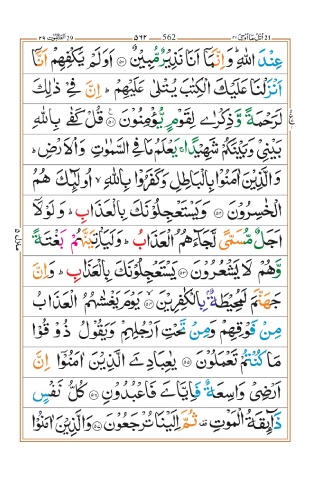 العنكبوت ٢٩ 562 ٥٦٢ اتل ما اوحی ٢١
عِنْدَ اللّٰهِ ؕ وَاِنَّمَاۤ اَنَا نَذِیْرٌ مُّبِیْنٌ ﴿۵۰﴾ اَوَلَمْ یَكْفِهِمْ اَنَّاۤ
اَنْزَلْنَا عَلَیْكَ الْكِتٰبَ یُتْلٰی عَلَیْهِمْ ؕ اِنَّ فِیْ ذٰلِكَ
لَرَحْمَةً وَّذِكْرٰی لِقَوْمٍ یُّؤْمِنُوْنَ ﴿۵۱﴾ قُلْ كَفٰی بِاللّٰهِ
بَیْنِیْ وَبَیْنَكُمْ شَهِیْدًا ۚ یَعْلَمُ مَا فِی السَّمٰوٰتِ وَالْاَرْضِ ؕ
وَالَّذِیْنَ اٰمَنُوْا بِالْبَاطِلِ وَكَفَرُوْا بِاللّٰهِ ۙ اُولٰٓئِكَ هُمُ
الْخٰسِرُوْنَ ﴿۵۲﴾ وَیَسْتَعْجِلُوْنَكَ بِالْعَذَابِ ؕ وَلَوْلَاۤ
اَجَلٌ مُّسَمًّی لَّجَآءَهُمُ الْعَذَابُ ؕ وَلَیَاْتِیَنَّهُمْ بَغْتَةً
وَّهُمْ لَا یَشْعُرُوْنَ ﴿۵۳﴾ یَسْتَعْجِلُوْنَكَ بِالْعَذَابِ ؕ وَاِنَّ
جَهَنَّمَ لَمُحِیْطَةٌۢ بِالْكٰفِرِیْنَ ﴿۵۴﴾ یَوْمَ یَغْشٰىهُمُ الْعَذَابُ
مِنْ فَوْقِهِمْ وَمِنْ تَحْتِ اَرْجُلِهِمْ وَیَقُوْلُ ذُوْقُوْا
مَا كُنْتُمْ تَعْمَلُوْنَ ﴿۵۵﴾ یٰعِبَادِیَ الَّذِیْنَ اٰمَنُوْۤا اِنَّ
اَرْضِیْ وَاسِعَةٌ فَاِیَّایَ فَاعْبُدُوْنِ ﴿۵۶﴾ كُلُّ نَفْسٍ
ذَآئِقَةُ الْمَوْتِ ۟ ثُمَّ اِلَیْنَا تُرْجَعُوْنَ ﴿۵۷﴾ وَالَّذِیْنَ اٰمَنُوْا